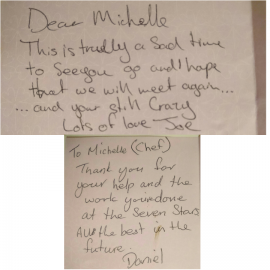 Dear Michelle
This is trully a sad time
to see you go and I hope
that we will meet again...
...and your still Crazy
Lots of love Joe
To Michelle (Chef)
Thank you for
your help and the
work you done
at the Seven Stars
All the best in the
future.
Daniel